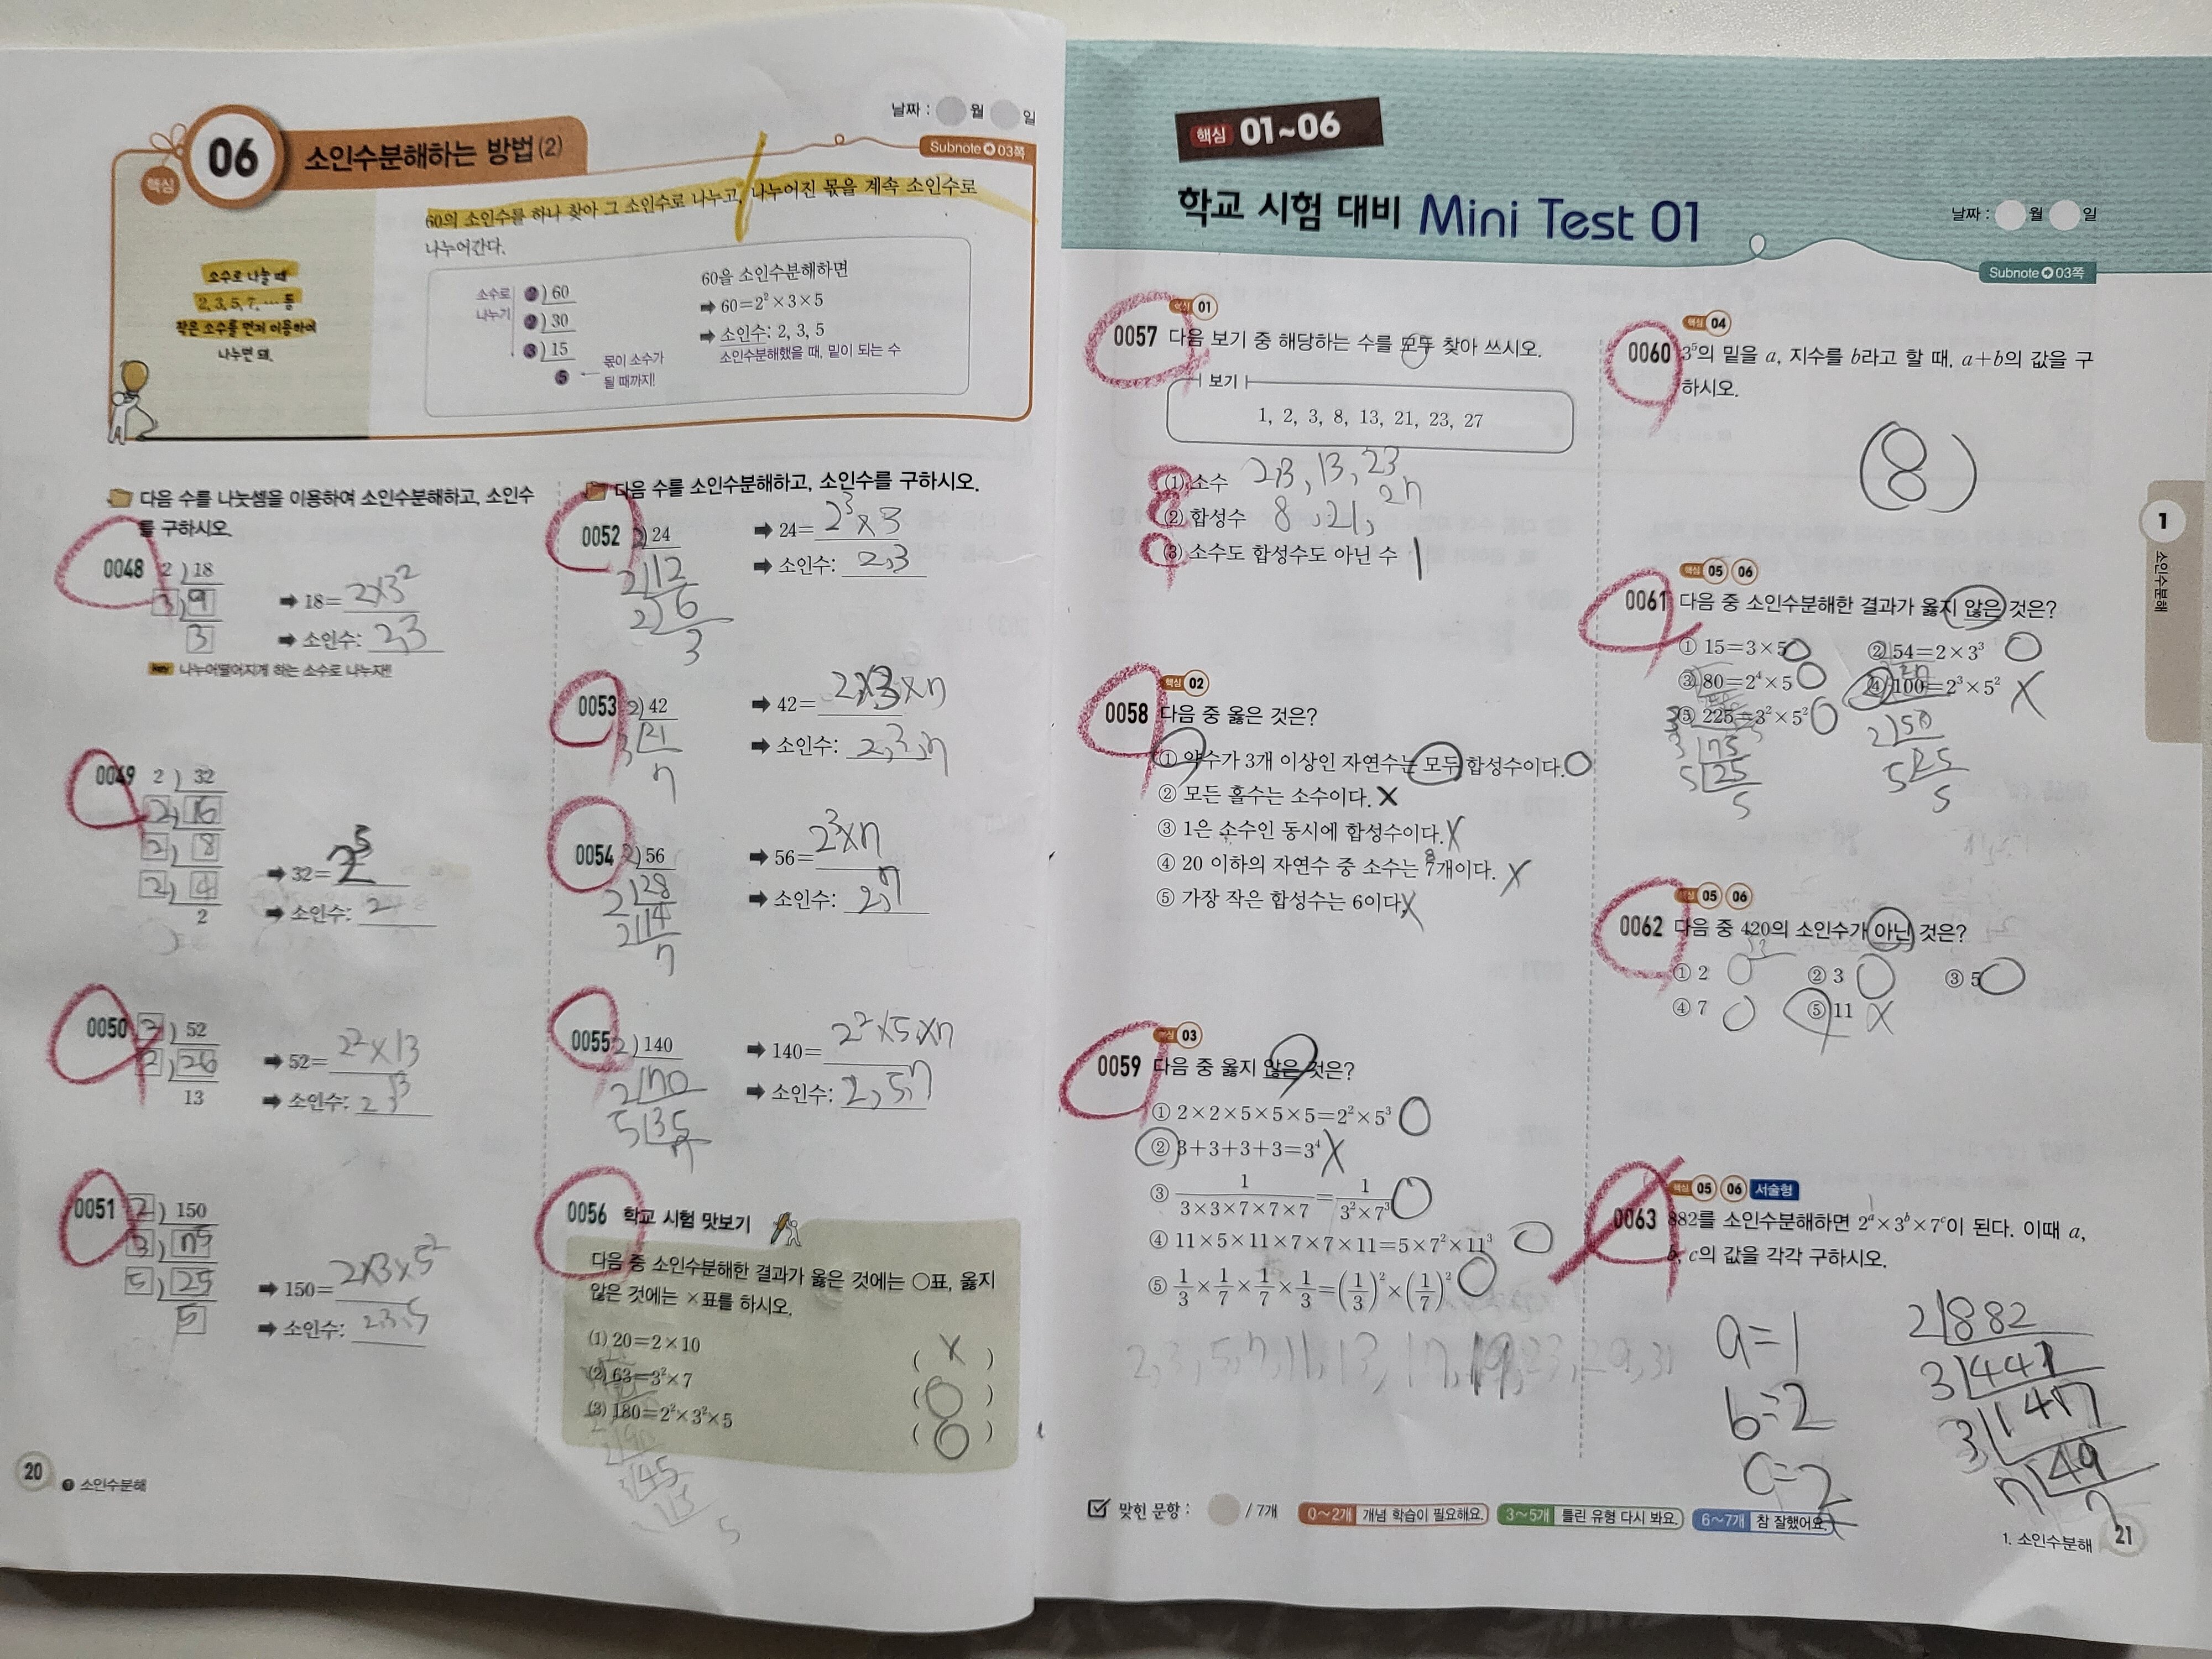 날짜 : 월 일
Subnote 03쪽
핵심 06 소인수분해하는 방법(2)
60의 소인수를 하나 찾아 그 소인수로 나누고, 나누어진 몫을 계속 소인수로
나누어간다.
소수로 나눌 때
2, 3, 5, 7, … 등
작은 소수를 먼저 이용하여
나누면 돼.
소수로
나누기
2 ) 60
2 ) 30
3 ) 15
5
몫이 소수가
될 때까지!
60을 소인수분해하면
➡ 60=2²×3×5
➡ 소인수: 2, 3, 5
소인수분해했을 때, 밑이 되는 수
다음 수를 나눗셈을 이용하여 소인수분해하고, 소인수
를 구하시오.
0048 2 ) 18
3 ) 9
3
➡ 18= 2×3²
➡ 소인수: 2,3
key 나누어떨어지게 하는 소수로 나누자!!
0049 2 ) 32
2 ) 16
2 ) 8
2 ) 4
2
➡ 32= 2⁵
➡ 소인수: 2
0050 2 ) 52
2 ) 26
13
➡ 52= 2²×13
➡ 소인수: 2 13
0051 2 ) 150
3 ) 75
5 ) 25
5
➡ 150= 2×3×5²
➡ 소인수: 2,3,5
다음 수를 소인수분해하고, 소인수를 구하시오.
0052 2) 24
2) 12
2) 6
3
➡ 24= 2³×3
➡ 소인수: 2,3
0053 2) 42
3) 21
7
➡ 42= 2×3×7
➡ 소인수: 2,3,7
0054 2) 56
2) 28
2) 14
7
➡ 56= 2³×7
➡ 소인수: 2,7
0055 2) 140
2) 70
5) 35
7
➡ 140= 2²×5×7
➡ 소인수: 2,5,7
0056 학교 시험 맛보기
다음 중 소인수분해한 결과가 옳은 것에는 ○표, 옳지
않은 것에는 ×표를 하시오.
(1) 20=2×10 ( X )
(2) 63=3²×7 ( O )
(3) 180=2²×3²×5 ( O )
45
5
20 ❶ 소인수분해
핵심 01~06
학교 시험 대비 Mini Test 01
날짜 : 월 일
Subnote 03쪽
핵심 01
0057 다음 보기 중 해당하는 수를 모두 찾아 쓰시오.
보기
1, 2, 3, 8, 13, 21, 23, 27
(1) 소수 2,3, 13, 23
(2) 합성수 8, 21, 27
(3) 소수도 합성수도 아닌 수 1
핵심 02
0058 다음 중 옳은 것은?
① 약수가 3개 이상인 자연수는 모두 합성수이다. O
② 모든 홀수는 소수이다. X
③ 1은 소수인 동시에 합성수이다. X
④ 20 이하의 자연수 중 소수는 7개이다. X
8
⑤ 가장 작은 합성수는 6이다. X
핵심 03
0059 다음 중 옳지 않은 것은?
① 2×2×5×5×5=2²×5³ O
② 3+3+3+3=3⁴ X
③ 1/(3×3×7×7×7)=1/(3²×7³) O
④ 11×5×11×7×7×11=5×7²×11³ O
⑤ 1/3×1/7×1/7×1/3=(1/3)²×(1/7)² O
2, 3, 5, 7, 11, 13, 17, 19, 23, 29, 31
핵심 04
0060 3⁵의 밑을 a, 지수를 b라고 할 때, a+b의 값을 구
하시오.
(8)
핵심 05 06
0061 다음 중 소인수분해한 결과가 옳지 않은 것은?
① 15=3×5 O ② 54=2×3³ O
③ 80=2⁴×5 O ④ 100=2³×5² X
⑤ 225=3²×5² O
3) 75
5) 25
5
2) 50
5) 25
5
핵심 05 06
0062 다음 중 420의 소인수가 아닌 것은?
① 2 O ② 3 O ③ 5 O
④ 7 O ⑤ 11 X
핵심 05 06 서술형
0063 882를 소인수분해하면 2ᵃ×3ᵇ×7ᶜ이 된다. 이때 a,
b, c의 값을 각각 구하시오.
a=1
b=2
c=2
2) 882
3) 441
3) 147
7) 49
7
맞힌 문항 : / 7개 0~2개 개념 학습이 필요해요. 3~5개 틀린 유형 다시 봐요. 6~7개 참 잘했어요.
1. 소인수분해 21
1
소인수분해